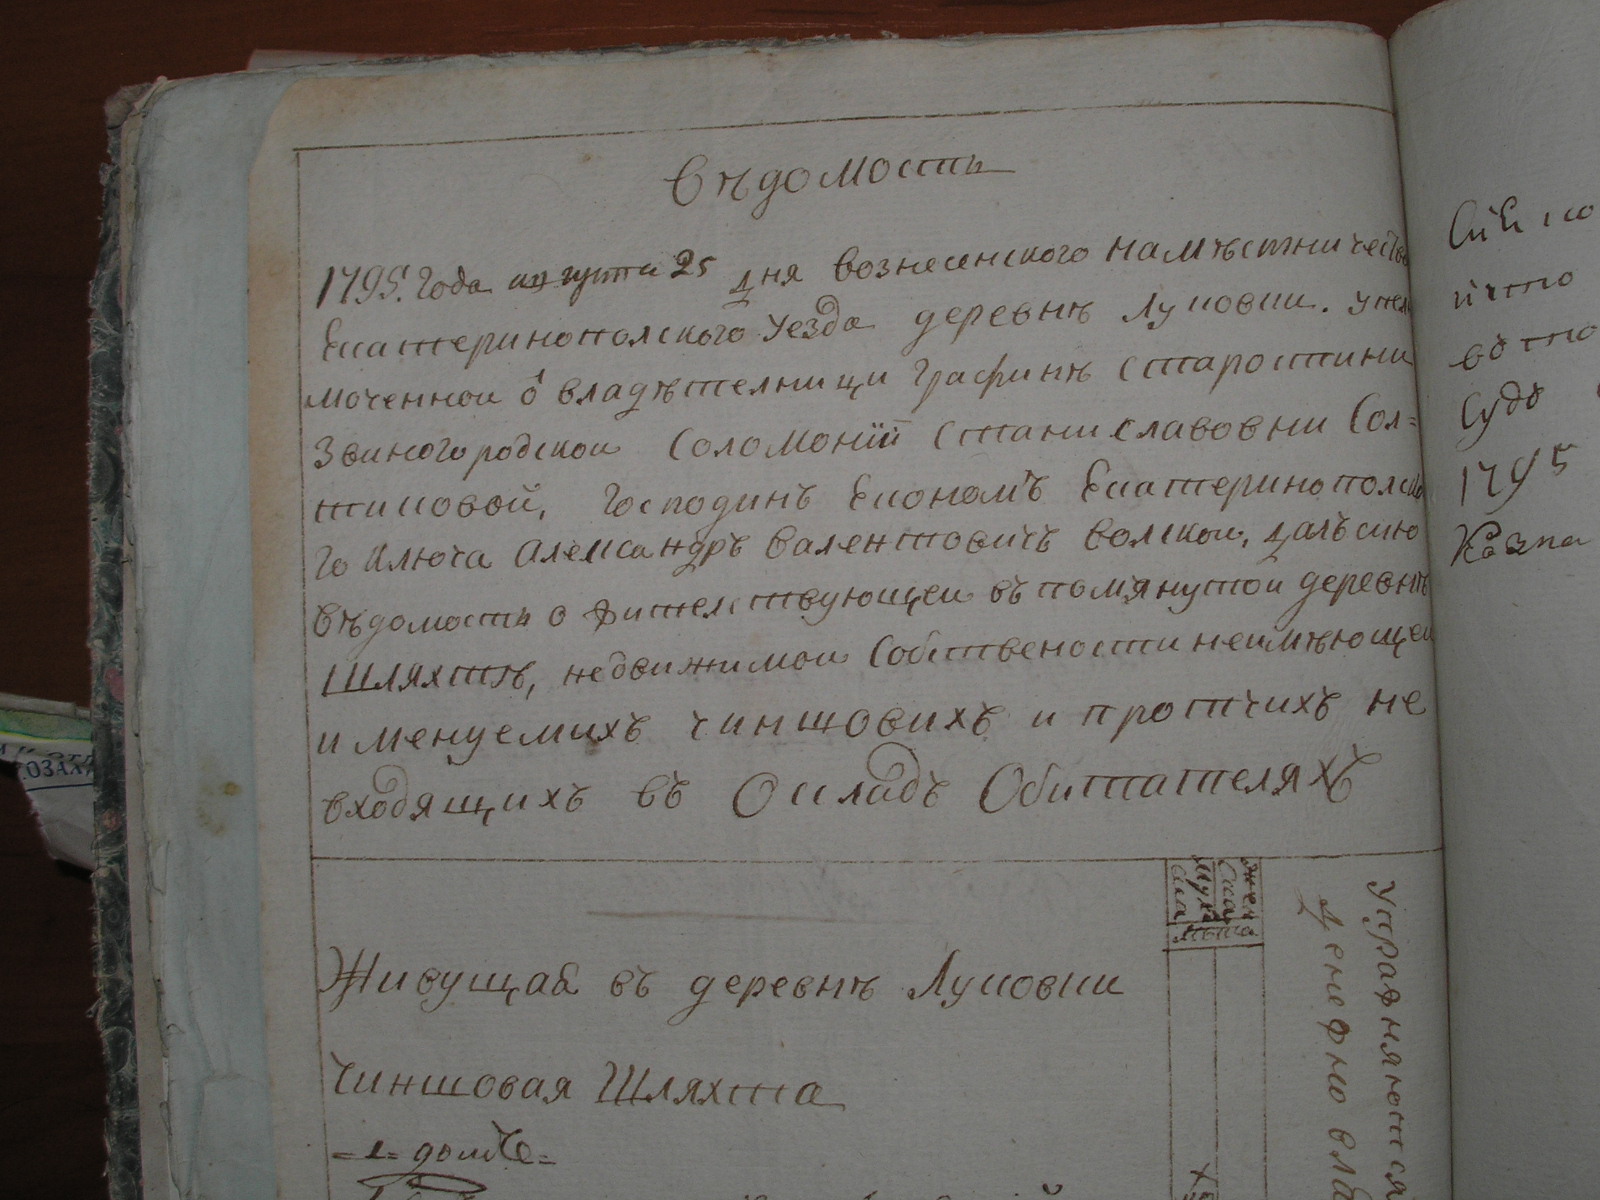 Вѣдомость
1795. Года августа 25 дня вознесенского намѣстничества
Екатеринополского уезда деревнѣ Луковки. упол
моченной ѿ владѣтелници Графинѣ Старостини
Звиногородской Соломонїй Станиславовни Сол=
тиковой, Господинъ Економъ Екатеринополско
го Ключа Александръ Валентовичъ Волской, далъ сию
вѣдомость о жителствующей въ помянутой деревнѣ
Шляхтѣ, недвижимой Собствености неимѣющей
именуемихъ чиншовихъ и протчихъ не
входящихъ въ Окладъ Обитателяхъ
Живущая въ деревнѣ Луковки
Чиншовая Шляхта
=1= домъ=
мужска
женска
лѣта
Упражняются
денежно
что
во
Судъ
1795